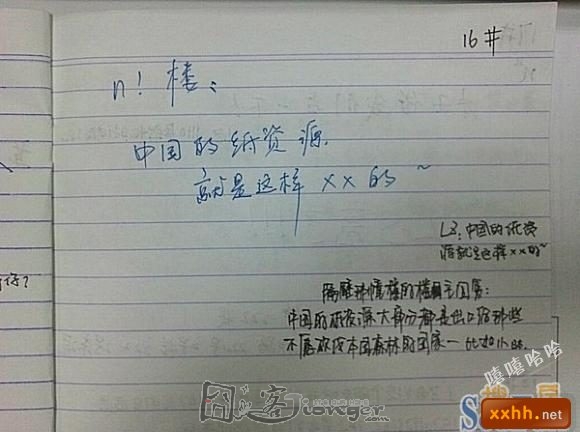 16#
n！楼：
中国的纸资源
就是这样xx的~
LZ：中国的纸资
源就是这样xx的~
隔壁
楼的楼主回复：
中国的纸资源大部分都是出口给那些
不愿砍伐本国森林的国家—比如小日本.
嘻嘻哈哈
囧之客 Jionger.com
xxhh.net